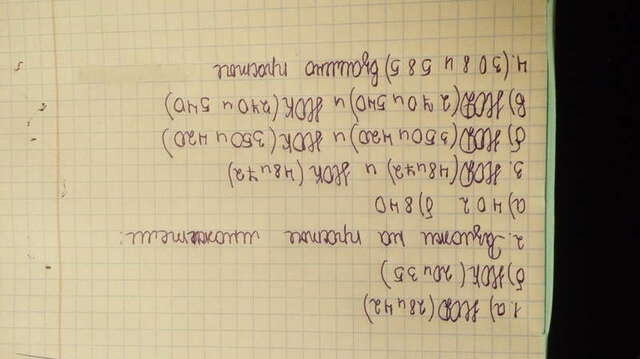 1. а) НОД (28 и 42)
б) НОК (20 и 35)
2. Разложи на простые множители:
а) 402 б) 840
3. НОД (48 и 72) и НОК (48 и 72)
б) НОД (350 и 420) и НОК (350 и 420)
в) НОД (270 и 540) и НОК (270 и 540)
4. (308 и 585) взаимно простые